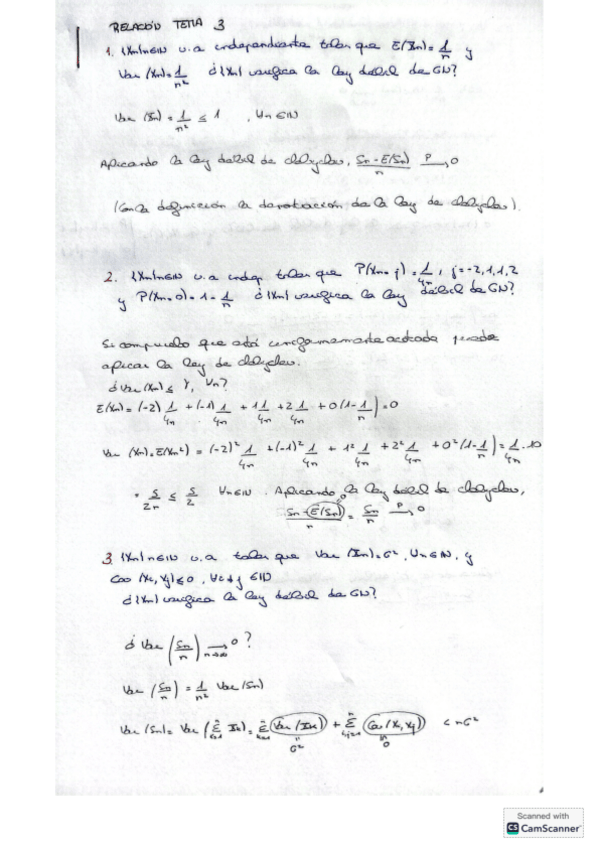 RELACIÓN TEMA 3
1. {Xn}n∈IN v.a independientes tales que E(Xn)=1/n y
Var(Xn)=1/n² ¿{Xn} verifica la ley débil de GN?
Var(Xn)=1/n² ≤ 1 , ∀n∈IN
Aplicando la ley débil de, Sn-E(Sn)/n P→ 0
(Con la definición la demostración de la ley de).
2. {Xn}n∈IN v.a indep. tales que P(Xn=j)=1/4n, j=-2,1,1,2
y P(Xn=0)=1-1/n ¿{Xn} verifica la ley débil de GN?
Si compruebo que está uniformemente acotada puedo
aplicar la ley de.
¿Var(Xn)≤ γ, ∀n?
E(Xn)=(-2)1/4n+(-1)1/4n+1 1/4n+2 1/4n+0(1-1/n)=0
Var(Xn)=E(Xn²)=(-2)²1/4n+(-1)²1/4n+1²1/4n+2²1/4n+0²(1-1/n)=1/4n·10
= 5/2n ≤ 5/2 ∀n∈IN. Aplicando la ley débil de,
Sn-E(Sn)/n = Sn/n P→ 0
0
3. {Xn}n∈IN v.a tales que Var(Xn)=σ², ∀n∈IN, y
Cov(Xi,Xj)≤0, ∀i≠j ∈IN
¿{Xn} verifica la ley débil de GN?
¿Var(Sn/n) →n→∞ 0?
Var(Sn/n)=1/n² Var(Sn)
Var(Sn)=Var(Σ Xk)=Σ Var(Xk)+Σ Cov(Xi,Xj) < nσ²
σ² 0
Scanned with
CS CamScanner